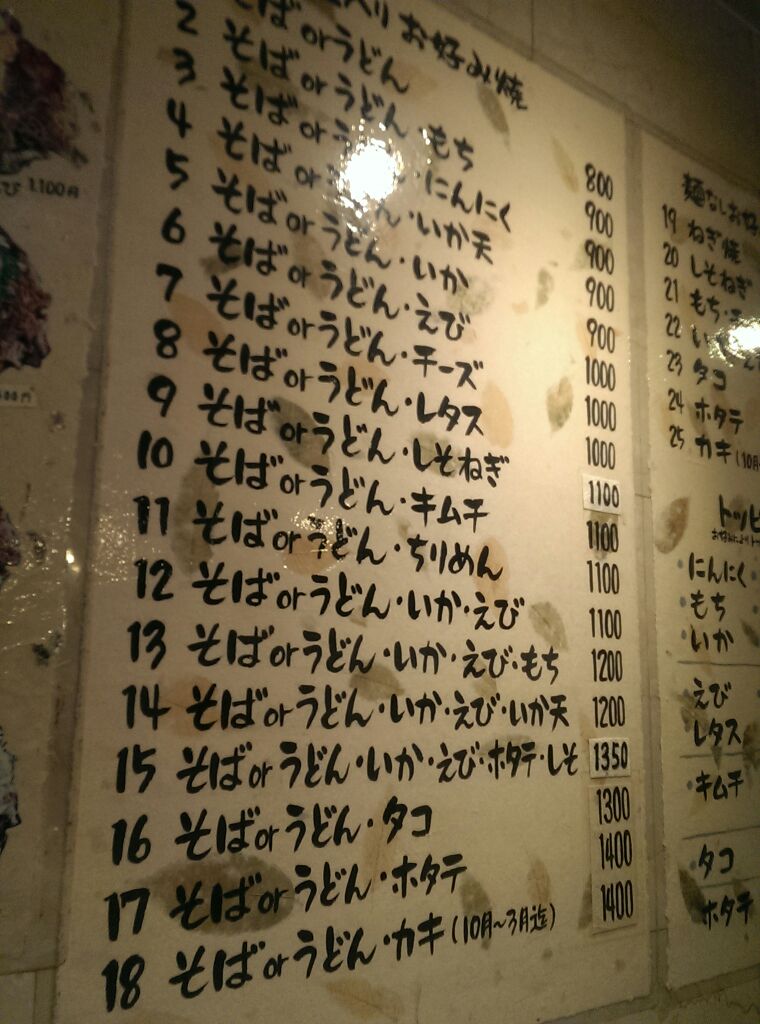 入りお好み焼
そばorうどん 800
2 そばorうどん・もち 900
3 そばorうどん・にんにく 900
4 そばorうどん・いか天 900
5 そばorうどん・いか 900
6 そばorうどん・えび 1000
7 そばorうどん・チーズ 1000
8 そばorうどん・レタス 1000
9 そばorうどん・しそねぎ 1100
10 そばorうどん・キムチ 1100
11 そばorうどん・ちりめん 1100
12 そばorうどん・いか・えび 1100
13 そばorうどん・いか・えび・もち 1200
14 そばorうどん・いか・えび・いか天 1200
15 そばorうどん・いか・えび・ホタテ・しそ 1350
16 そばorうどん・タコ 1300
17 そばorうどん・ホタテ 1400
18 そばorうどん・カキ(10月〜3月迄) 1400
麺なしお好
19 ねぎ焼
20 しそねぎ
21 もち・
22 い
23 タコ
24 ホタテ
25 カキ(10月
トッピ
・にんにく
・もち
・いか
えび
レタス
・キムチ
・タコ
・ホタテ
び 1100円